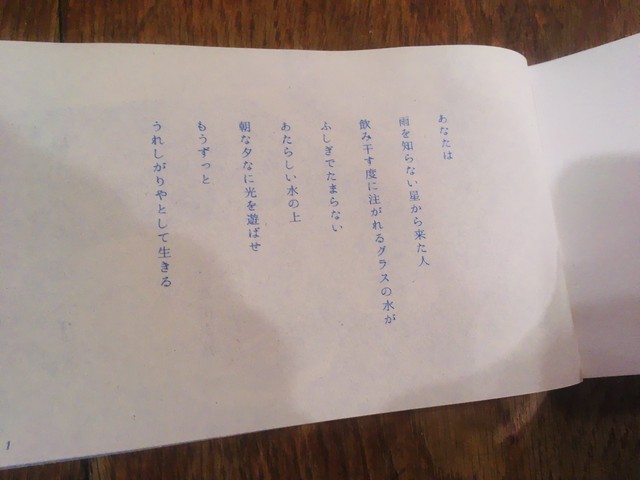 あなたは
雨を知らない星から来た人
飲み干す度に注がれるグラスの水が
ふしぎでたまらない
あたらしい水の上
朝な夕なに光を遊ばせ
もうずっと
うれしがりやとして生きる
1